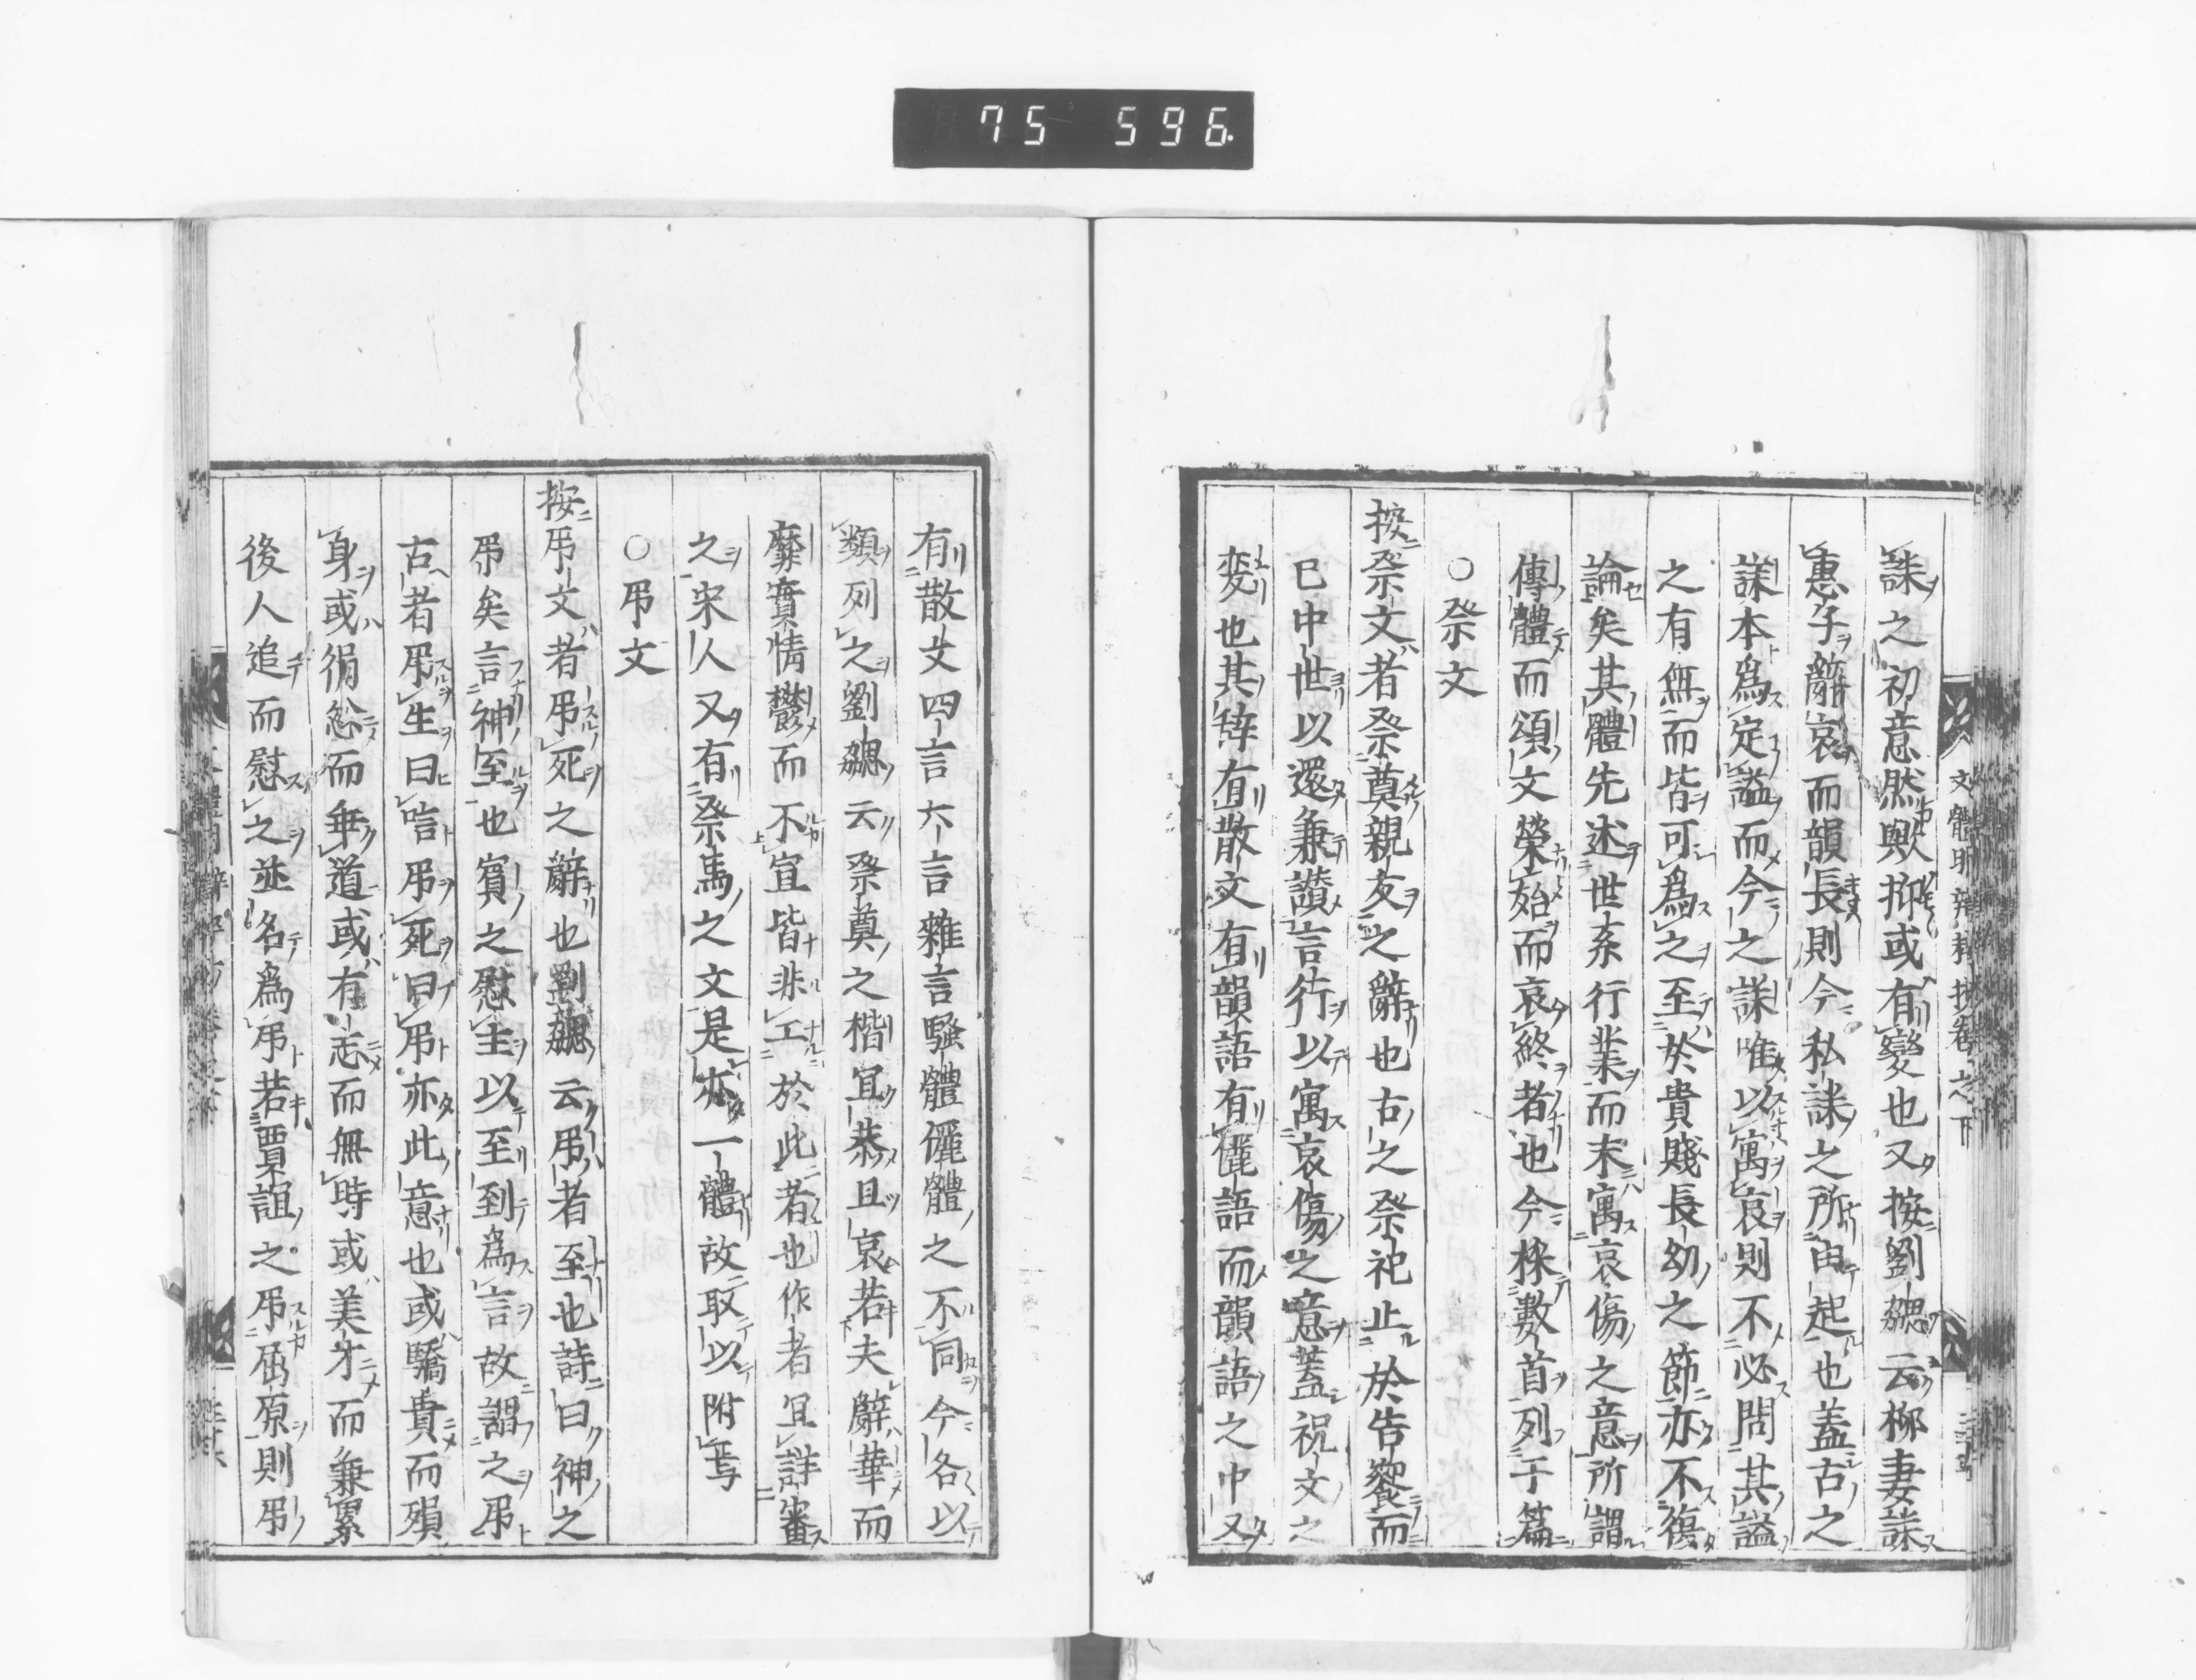 75 596
文體明辨粹抄卷之下
誄之初意然歟抑或有變也又按劉勰云柳妻誄
惠子辭哀而韻長則今私誄之所由起也蓋古之
誄本爲定謚而今之誄唯以寓哀則不必問其謚
之有無而皆可爲之至於貴賤長幼之節亦不復
論矣其體先述世系行業而末寓哀傷之意所謂
傳體而頌文榮始而哀終者也今採數首列于篇
○祭文
按祭文者祭奠親友之辭也古之祭祀止於告饗而
已中世以還兼讃言行以寓哀傷之意蓋祝文之
変也其辞有散文有韻語有儷語而韻語之中又
有散文四言六言雜言騷體儷體之不同今各以
類列之劉勰云祭奠之楷宜恭且哀若夫辭華而
靡實情鬱而不宣皆非工於此者也作者宜詳審
之宋人又有祭馬之文是亦一體故取以附焉
○吊文
按吊文者吊死之辭也劉勰云吊者至也詩曰神之
吊矣言神至也賓之慰主以至到爲言故謂之吊
古者吊生曰唁吊死曰吊亦此意也或驕貴而殞
身或狷忿而乖道或有志而無時或美才而兼累
後人追而慰之並名爲吊若賈誼之吊屈原則吊